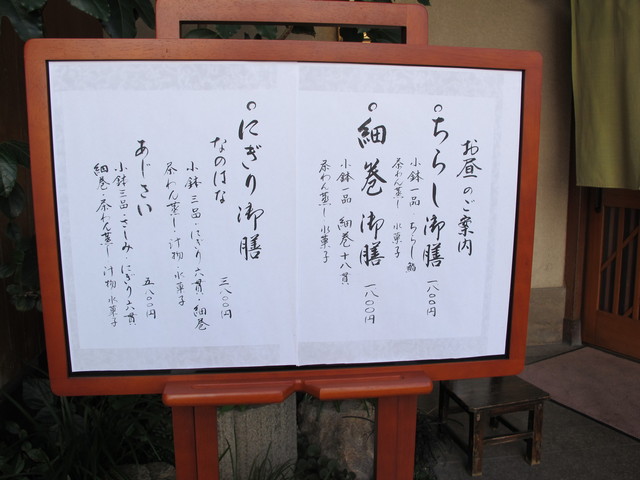 お昼のご案内
○ちらし御膳 一八〇〇円
小鉢一品 ちらし鮨
茶わん蒸し 水菓子
○細巻御膳 一八〇〇円
小鉢一品 細巻十八貫
茶わん蒸し 水菓子
○にぎり御膳
なのはな 三八〇〇円
小鉢三品・にぎり六貫・細巻
茶わん蒸し 汁物 水菓子
あじさい 五八〇〇円
小鉢三品・さしみ・にぎり六貫
細巻・茶わん蒸し 汁物 水菓子